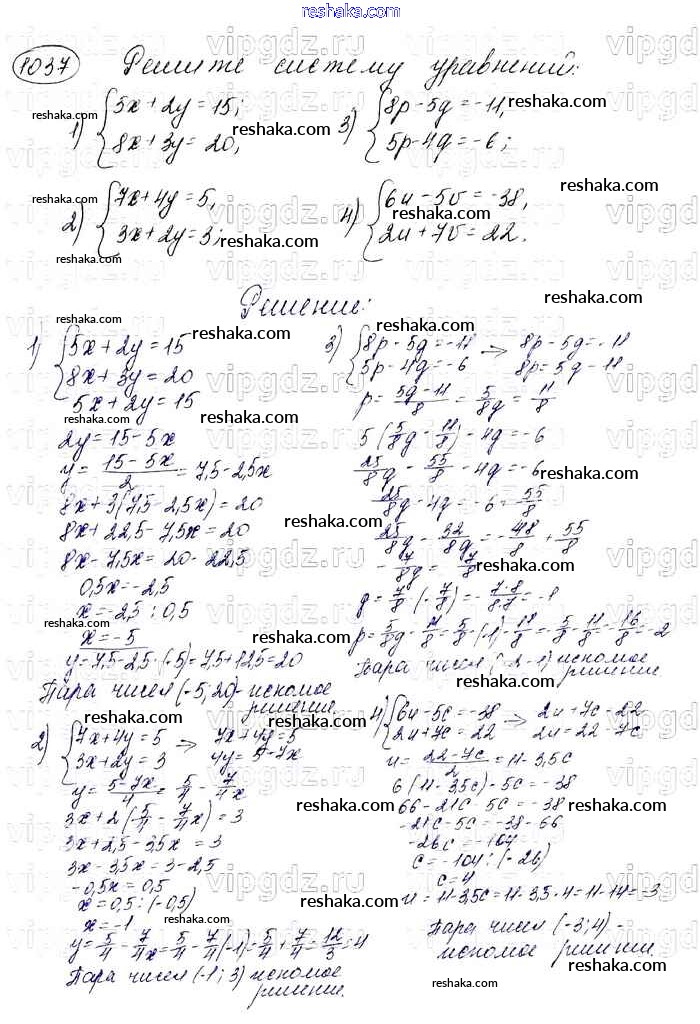 reshaka.com
1037 Решите систему уравнений:
1) {5x + 2y = 15;
8x + 3y = 20,
3) {8p - 5q = -11,
5p - 4q = -6;
2) {7x + 4y = 5,
3x + 2y = 3;
4) {6u - 5v = -38,
2u + 7v = 22.
Решение:
1) {5x + 2y = 15
8x + 3y = 20
5x + 2y = 15
2y = 15 - 5x
y = (15 - 5x)/2 = 7,5 - 2,5x
8x + 3(7,5 - 2,5x) = 20
8x + 22,5 - 7,5x = 20
8x - 7,5x = 20 - 22,5
0,5x = -2,5
x = -2,5 : 0,5
x = -5
y = 7,5 - 2,5 · (-5) = 7,5 + 12,5 = 20
Пара чисел (-5; 20) - искомое
решение.
2) {7x + 4y = 5 → 7x + 4y = 5
3x + 2y = 3 4y = 5 - 7x
y = (5 - 7x)/4 = 5/4 - 7/4 x
3x + 2(5/4 - 7/4 x) = 3
3x + 2,5 - 3,5x = 3
3x - 3,5x = 3 - 2,5
-0,5x = 0,5
x = 0,5 : (-0,5)
x = -1
y = 5/4 - 7/4 x = 5/4 - 7/4 (-1) = 5/4 + 7/4 = 12/3 = 4
Пара чисел (-1; 3) искомое
решение.
3) {8p - 5q = -11 → 8p - 5q = -11
5p - 4q = -6 8p = 5q - 11
p = (5q - 11)/8 = 5/8q = 11/8
5(5/8 q - 11/8) - 4q = -6
25/8 q - 55/8 - 4q = -6
25/8 q - 4q = -6 = 55/8
25/8 q - 32/8 q = -48/8 + 55/8
-7/8 q = 7/8
q = 7/8 : (-7/8) = -7·8/8·7 = -1
p = 5/8 q - 11/8 = 5/8 · (-1) - 11/8 = -5/8 - 11/8 = -16/8 = -2
Пара чисел (-2; -1) искомое
решение.
4) {6u - 5c = -38 → 2u + 7c = 22
2u + 7c = 22 2u = 22 - 7c
u = (22 - 7c)/2 = 11 - 3,5c
6(11 - 3,5c) - 5c = -38
66 - 21c - 5c = -38
-21c - 5c = -38 - 66
-26c = -104
c = -104 : (-26)
c = 4
u = 11 - 3,5c = 11 - 3,5 · 4 = 11 - 14 = -3
Пара чисел (-3; 4) -
искомое решение.